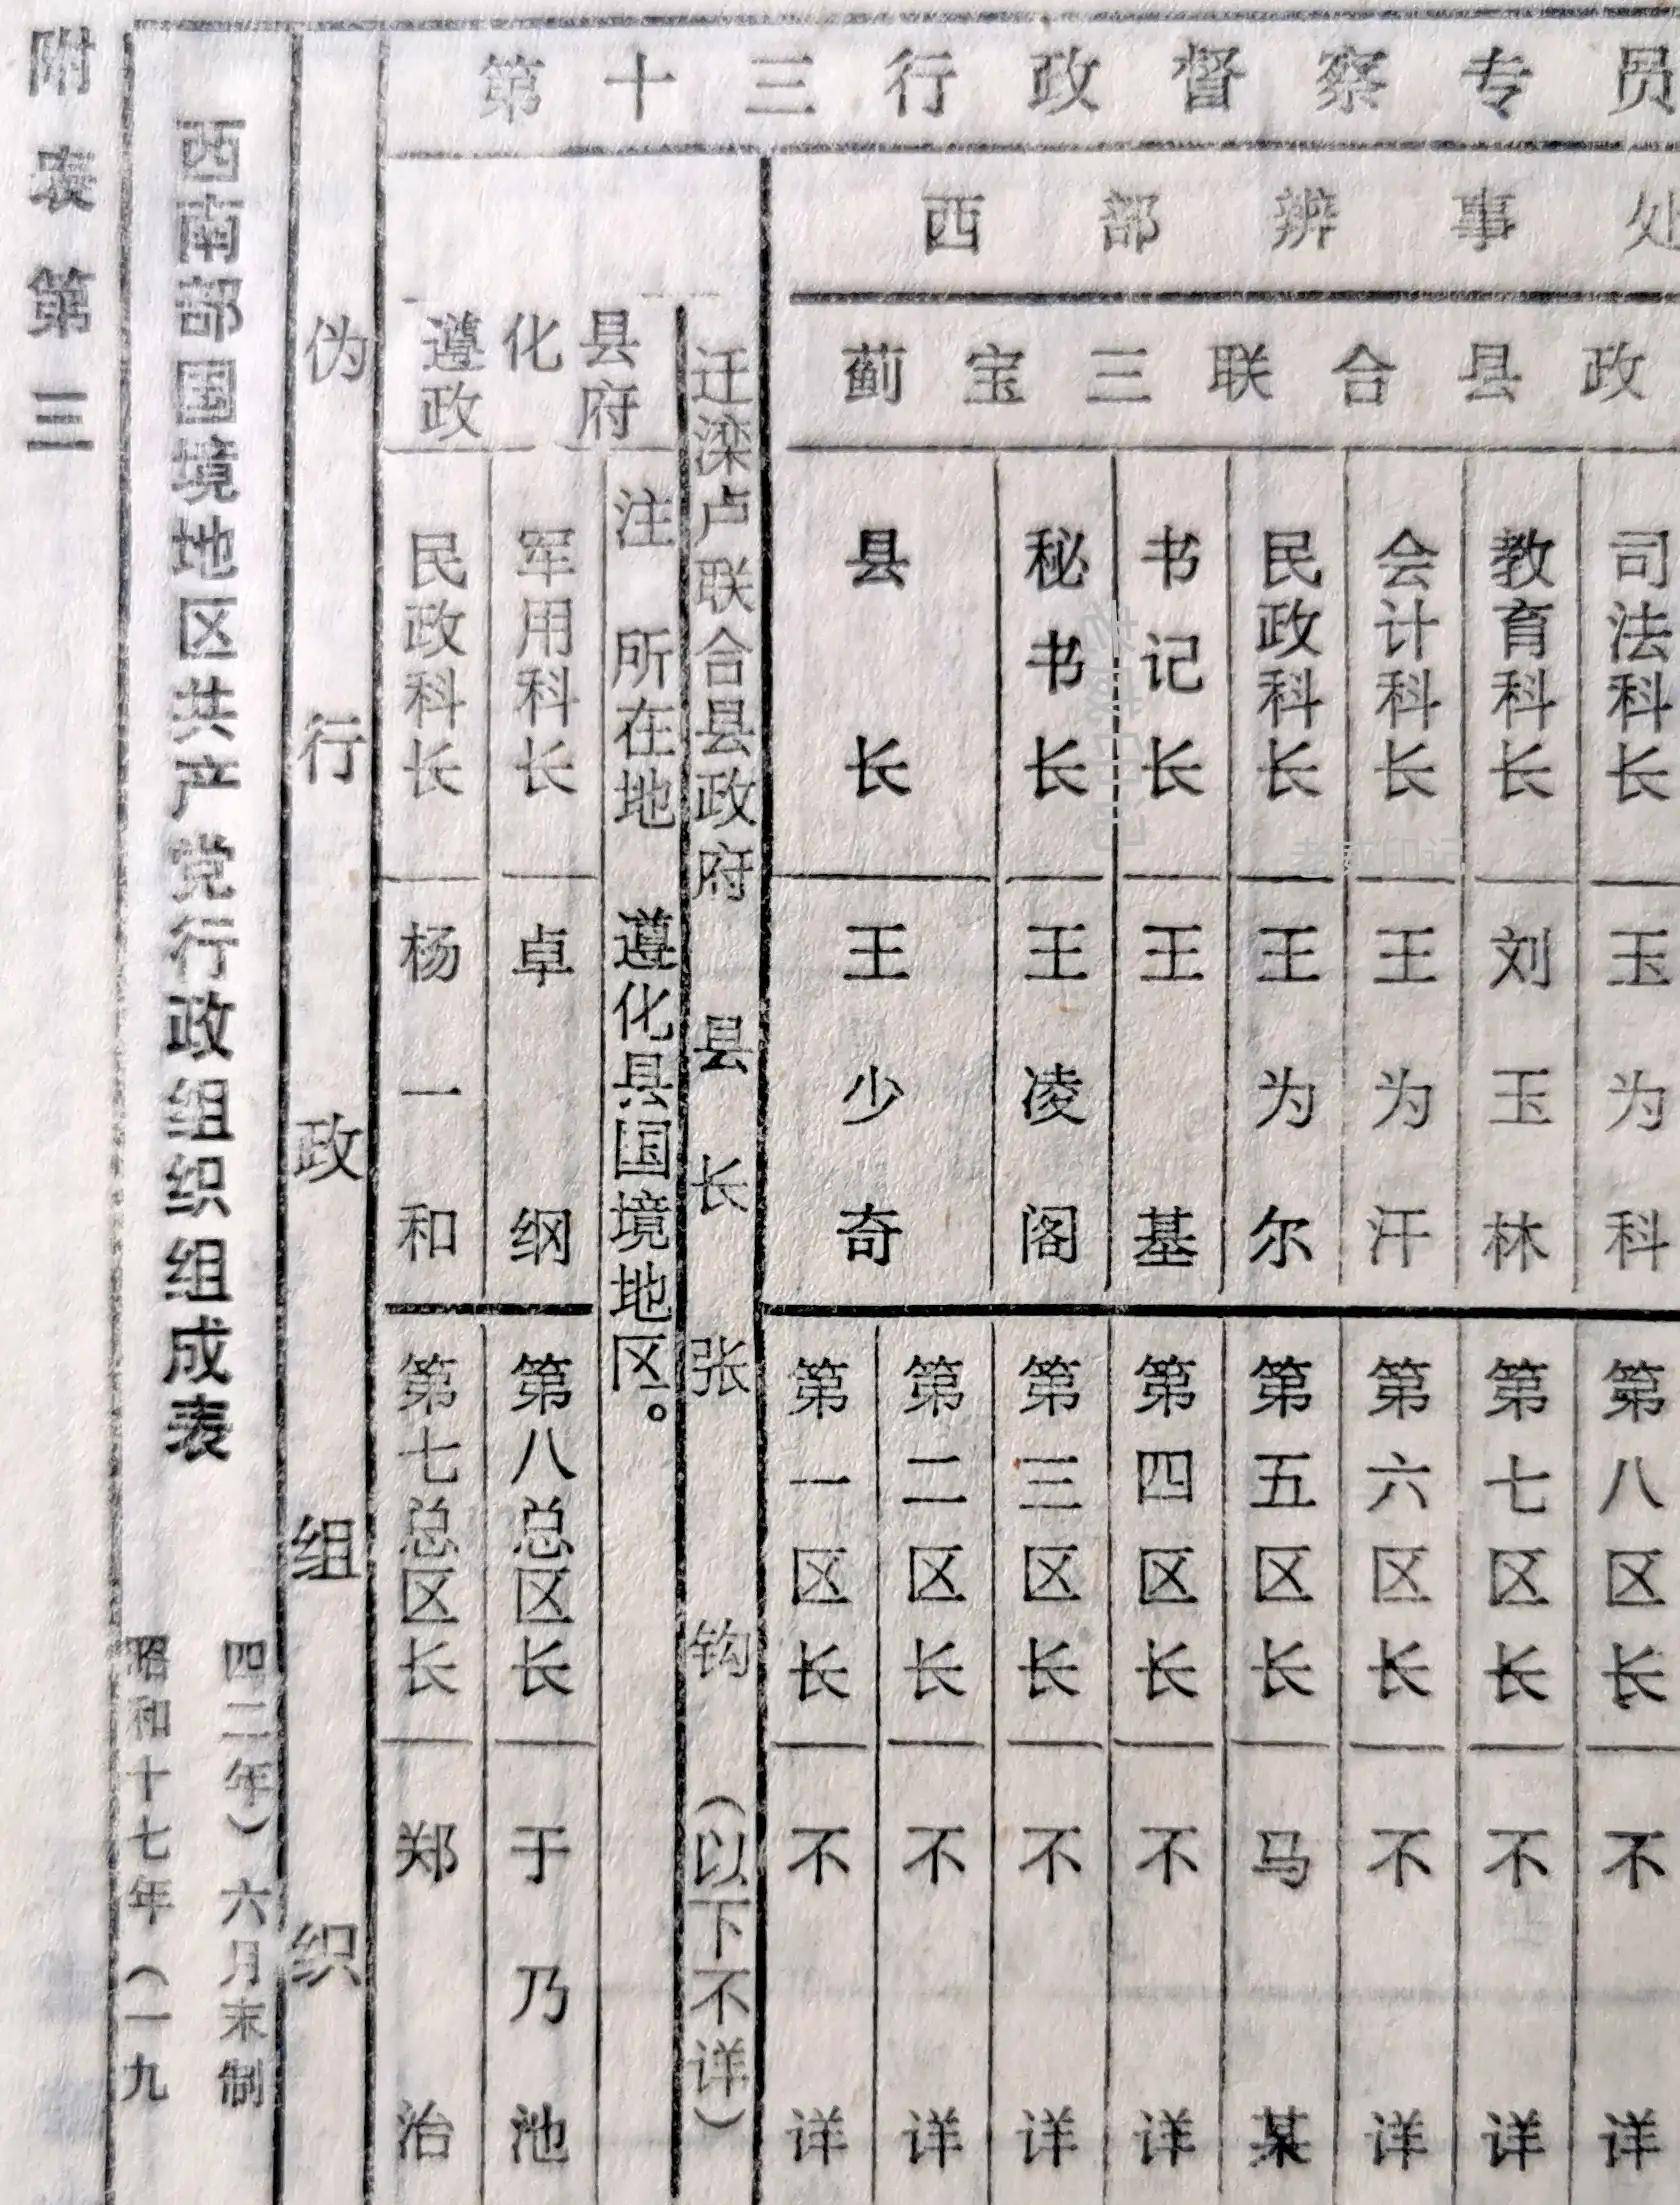 附表第三
西南部国境地区共产党行政组织组成表
昭和十七年（一九
四二年）六月末制
伪行政组织
第十三行政督察专员
遵化县
政府
民政科长
杨一和
军用科长
卓纲
第七总区长
郑治
第八总区长
于乃池
注 所在地 遵化县国境地区。
迁滦卢联合县政府 县长 张钩 （以下不详）
西部辨事处
蓟宝三联合县政
县长
王少奇
秘书长
王凌阁
书记长
王基
民政科长
王为尔
会计科长
王为汗
教育科长
刘玉林
司法科长
玉为科
第一区长
不详
第二区长
不详
第三区长
不详
第四区长
不详
第五区长
马某
第六区长
不详
第七区长
不详
第八区长
不详